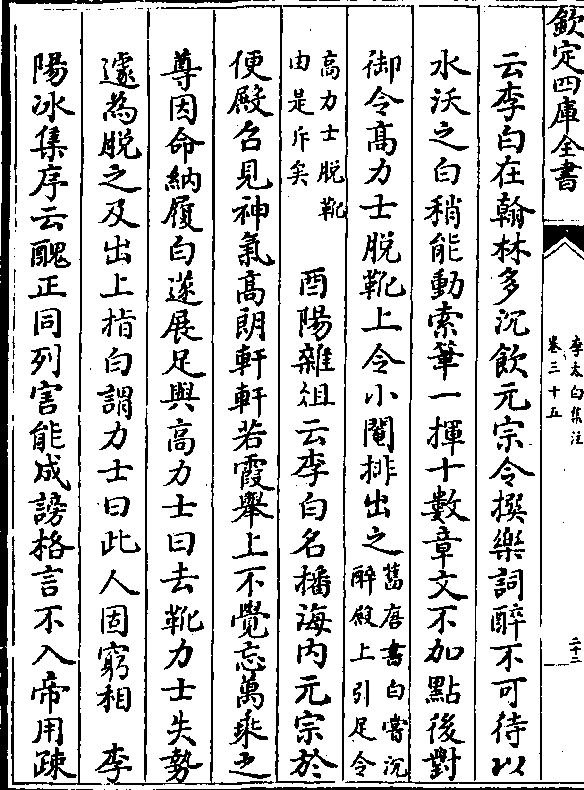 欽定四庫全書
李太白集注
卷三十五
二十三
云李白在翰林多沉飲元宗令撰樂詞醉不可待以
水沃之白稍能動索筆一揮十數章文不加點後對
御令高力士脫靴上令小閹排出之舊唐書白嘗沉
醉殿上引足令
高力士脫靴
由是斥矣
酉陽雜俎云李白名播海内元宗於
便殿召見神氣高朗軒軒若霞舉上不覺忘萬乘之
尊因命納履白遂展足與高力士曰去靴力士失勢
遽為脫之及出上指白謂力士曰此人固窮相
李
陽冰集序云醜正同列害能成謗格言不入帝用疎